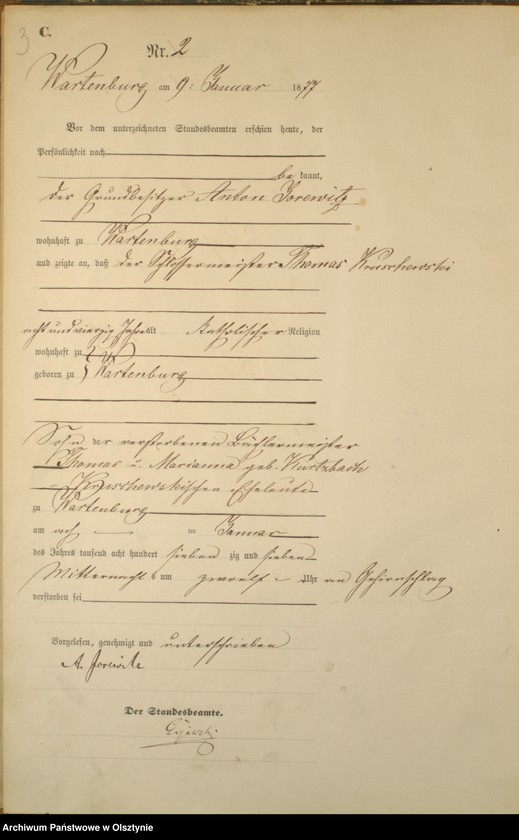 3
C.
Nr. 2
Wartenburg am 9. Januar 1877
Vor dem unterzeichneten Standesbeamten erschien heute, der
Persönlichkeit nach
be kannt,
der Grundbesitzer Anton
wohnhaft zu Wartenburg
und zeigte an, daß der Schlossermeister Thomas
acht und vierzig Jahre alt katholischer Religion
wohnhaft zu
geboren zu Wartenburg
Sohn der verstorbenen
Thomas u. Marianna geb. Kurtzbach
Eheleute
zu Wartenburg
am acht ten Januar
des Jahres tausend acht hundert sieben zig und sieben
Mitternacht um zwoelf Uhr an Gehirnschlag
verstorben sei
Vorgelesen, genehmigt und unterschrieben
A.
Der Standesbeamte.
Archiwum Państwowe w Olsztynie